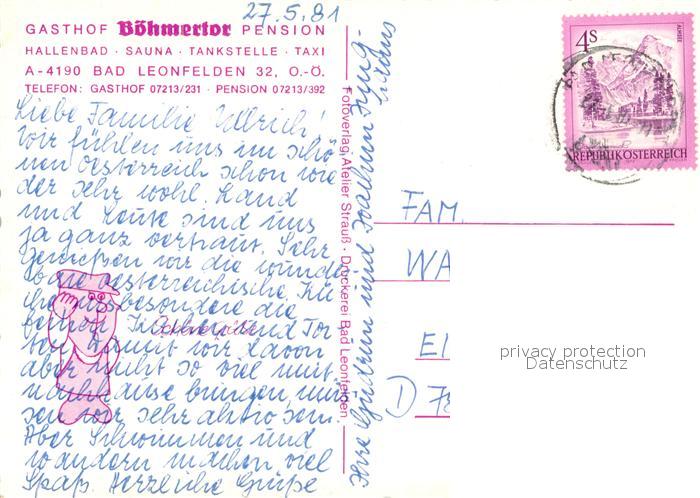 27.5.81
GASTHOF Böhmertor PENSION
HALLENBAD · SAUNA · TANKSTELLE · TAXI
A-4190 BAD LEONFELDEN 32, O.-Ö.
TELEFON: GASTHOF 07213/231 · PENSION 07213/392
Liebe Familie Ullrich!
Wir fühlen uns im schö-
nen Oesterreich schon wie
der sehr wohl. Land
und Leute sind uns
ja ganz vertraut. Sehr
genießen wir die wunder
bare oesterreichische Kü
che, insbesondere die
feinen Kuchen und Tor
ten. Damit wir davon
aber nicht so viel mit
nachhause bringen, müs
sen wir sehr aktiv sein.
Aber Schwimmen und
wandern machen viel
Spaß. Herzliche Grüße
Ihre Gudrun und Joachim
Fotoverlag Atelier Strauß · Druckerei Bad Leonfelden
4S
ALMSEE
REPUBLIK ÖSTERREICH
FAM.
WA
EI
D 78
privacy protection
Datenschutz